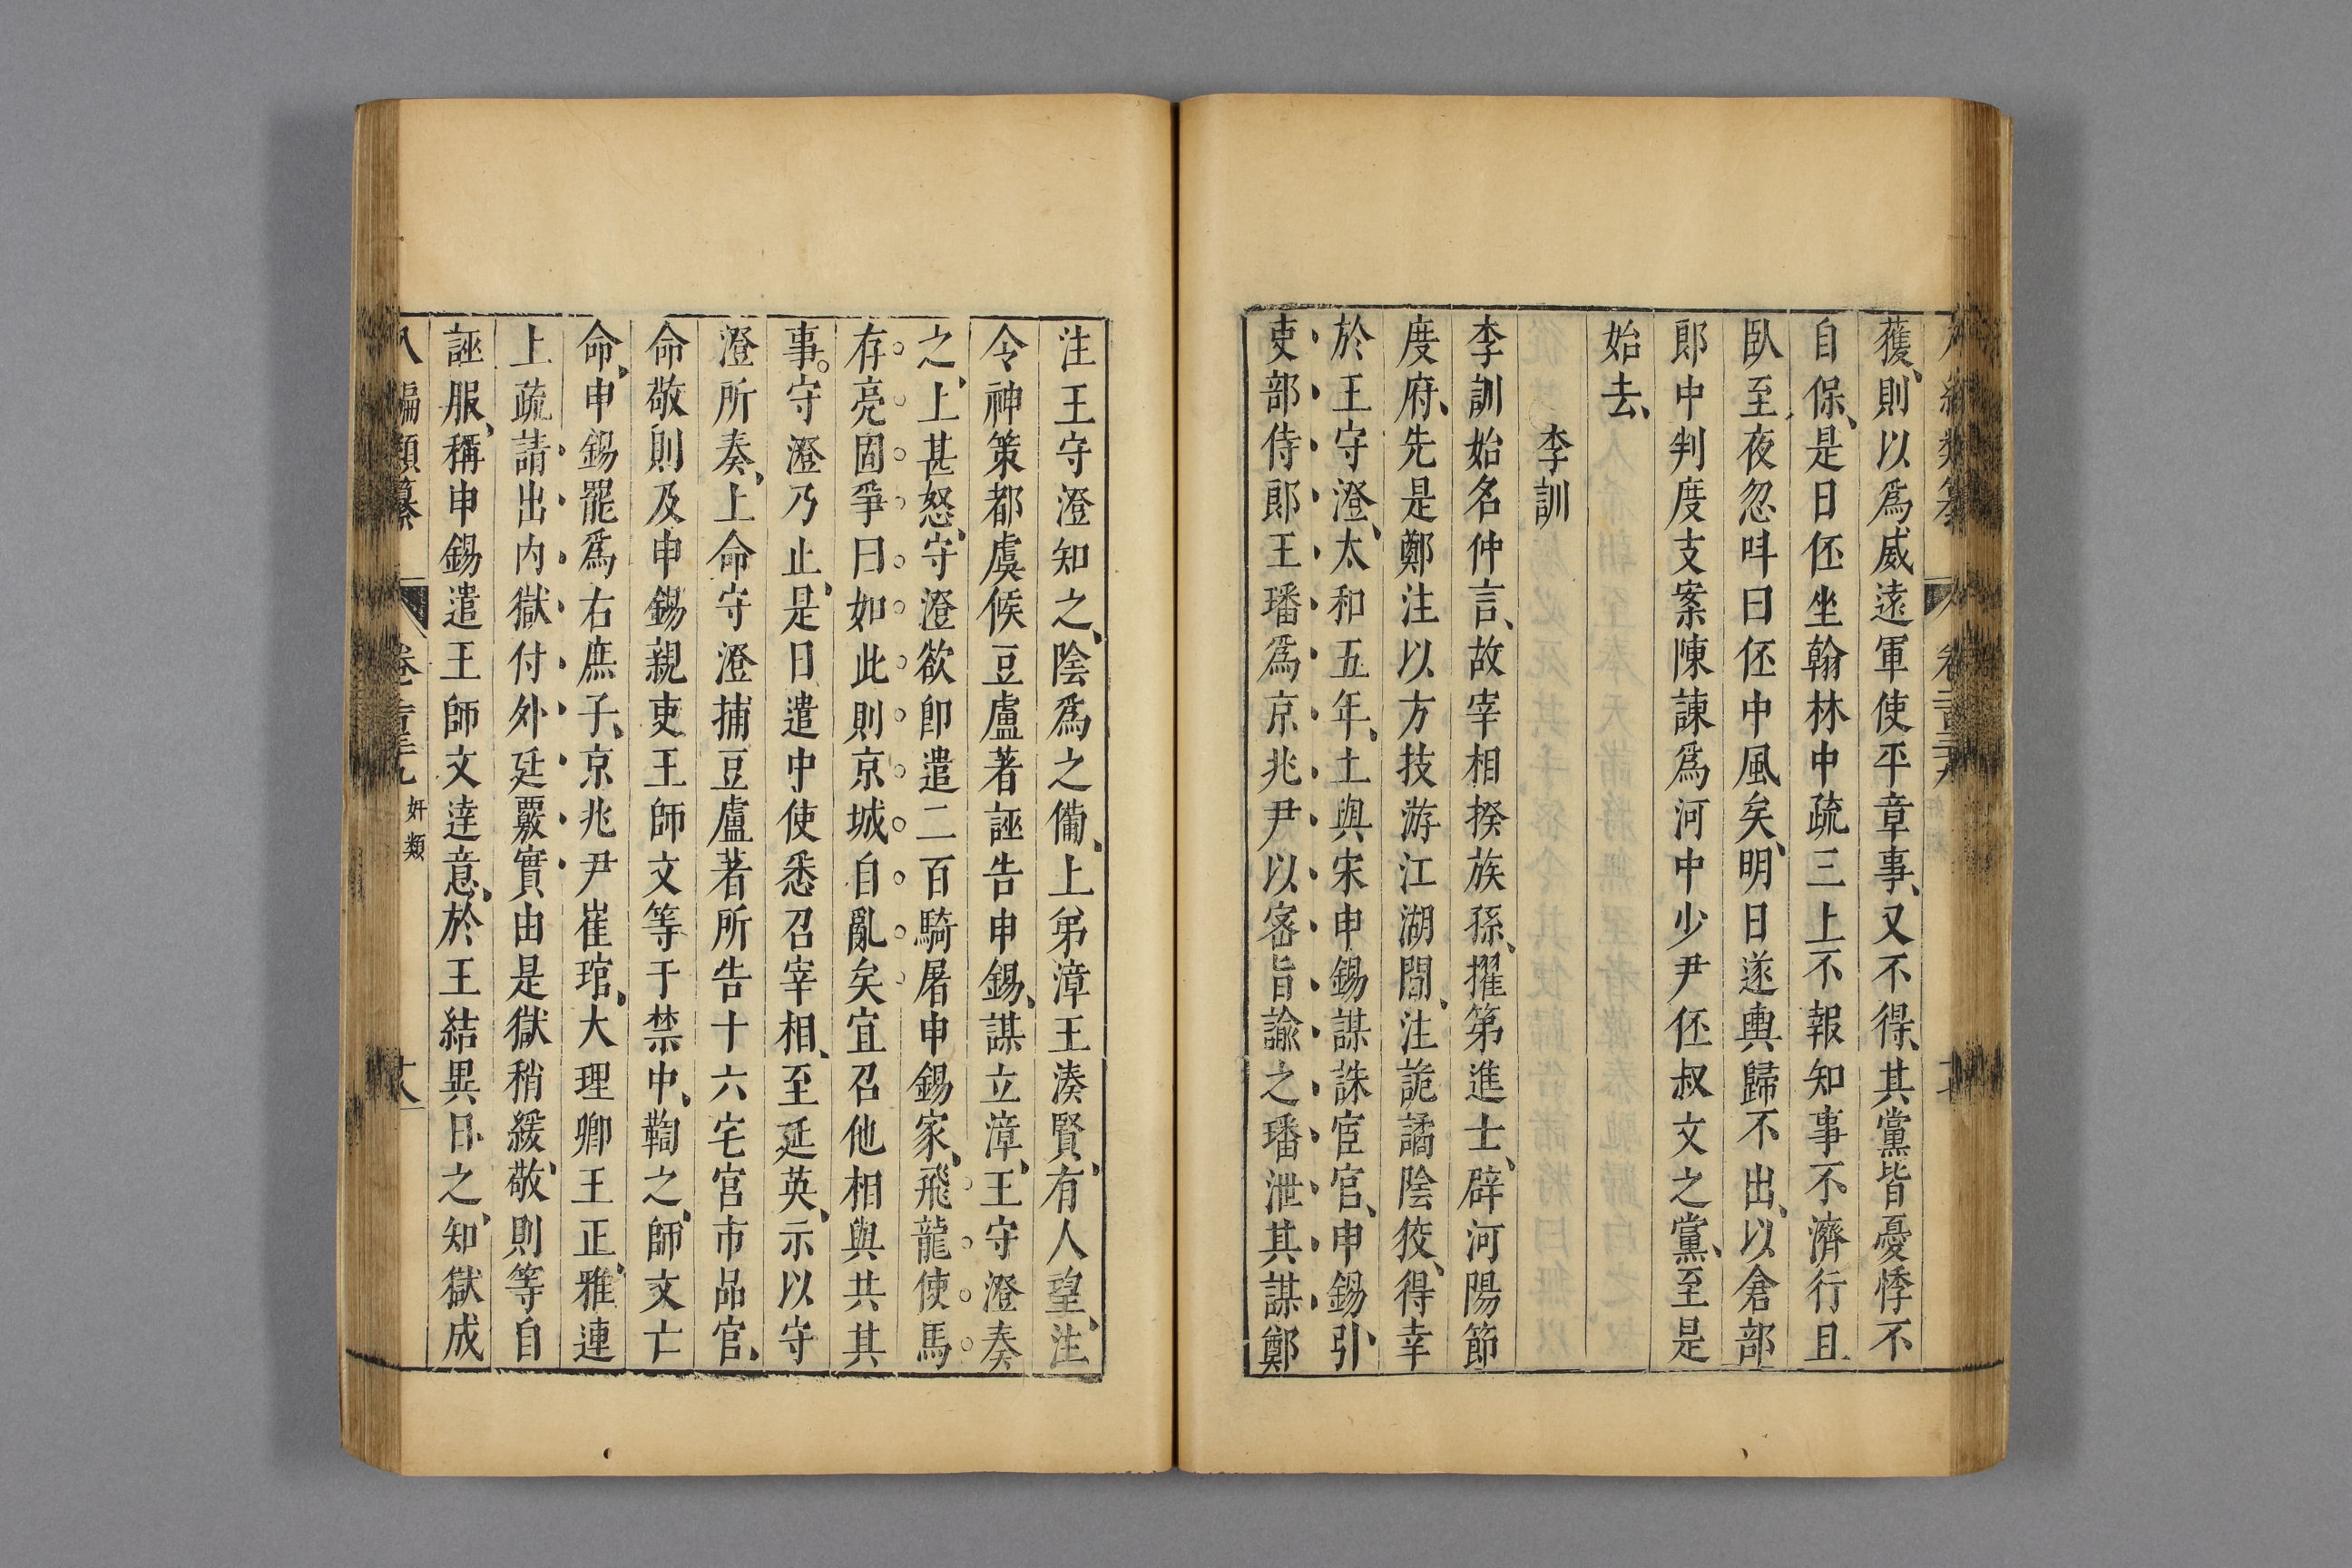 獲、則以爲威遠軍使平章事、又不得、其黨皆憂悸不
自保、是日伾坐翰林中疏三上不報知事不濟行且
臥至夜忽呌曰伾中風矣、明日遂輿歸不出、以倉部
郎中判度支案陳諌爲河中少尹伾叔文之黨、至是
始去、
李訓
李訓始名仲言、故宰相揆族孫、擢第進士、辟河陽節
度府、先是鄭注以方技游江湖間、注詭譎陰狡、得幸
於王守澄、太和五年、土與宋申錫謀誅宦官、申錫引
吏部侍郎王璠爲京兆尹以宻旨諭之璠泄其謀鄭
注王守澄知之、陰爲之備、上弟漳王湊賢、有人望、注
令神策都虞候豆盧著誣告申錫、謀立漳、王守澄奏
之、上甚怒、守澄欲卽遣二百騎屠申錫家、飛龍使馬
存亮固爭曰如此則京城自亂矣宜召他相與共其
事。守澄乃止、是日遣中使悉召宰相、至延英、示以守
澄所奏、上命守澄捕豆盧著所告十六宅宮市品官、
命敬則及申錫親吏王師文等于禁中、鞫之、師文亡
命、申錫罷爲右庶子、京兆尹崔琯、大理卿王正雅、連
上疏請出内獄付外廷覈實由是獄稍緩、敬則等自
誣服、稱申錫遣王師文逹意、於王結異日之、知獄成
八編類纂 卷二百三十九 奸類 十八